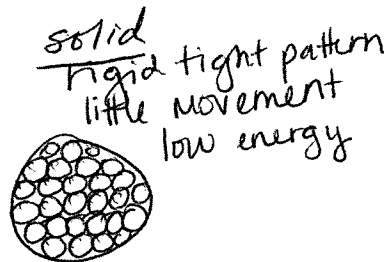 solid
rigid tight pattern
little movement
low energy